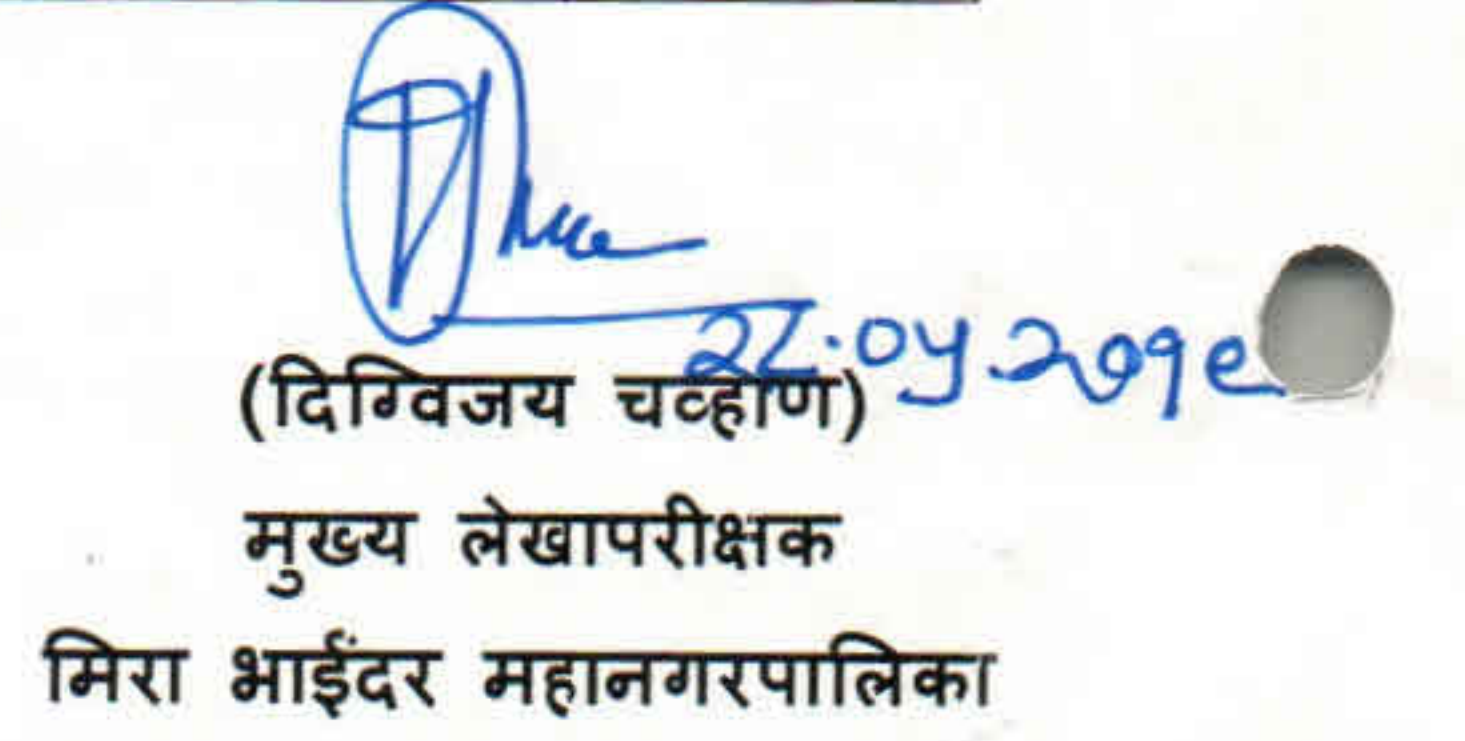 २८.०५.२०१९
(दिग्विजय चव्हाण)
मुख्य लेखापरीक्षक
मिरा भाईंदर महानगरपालिका